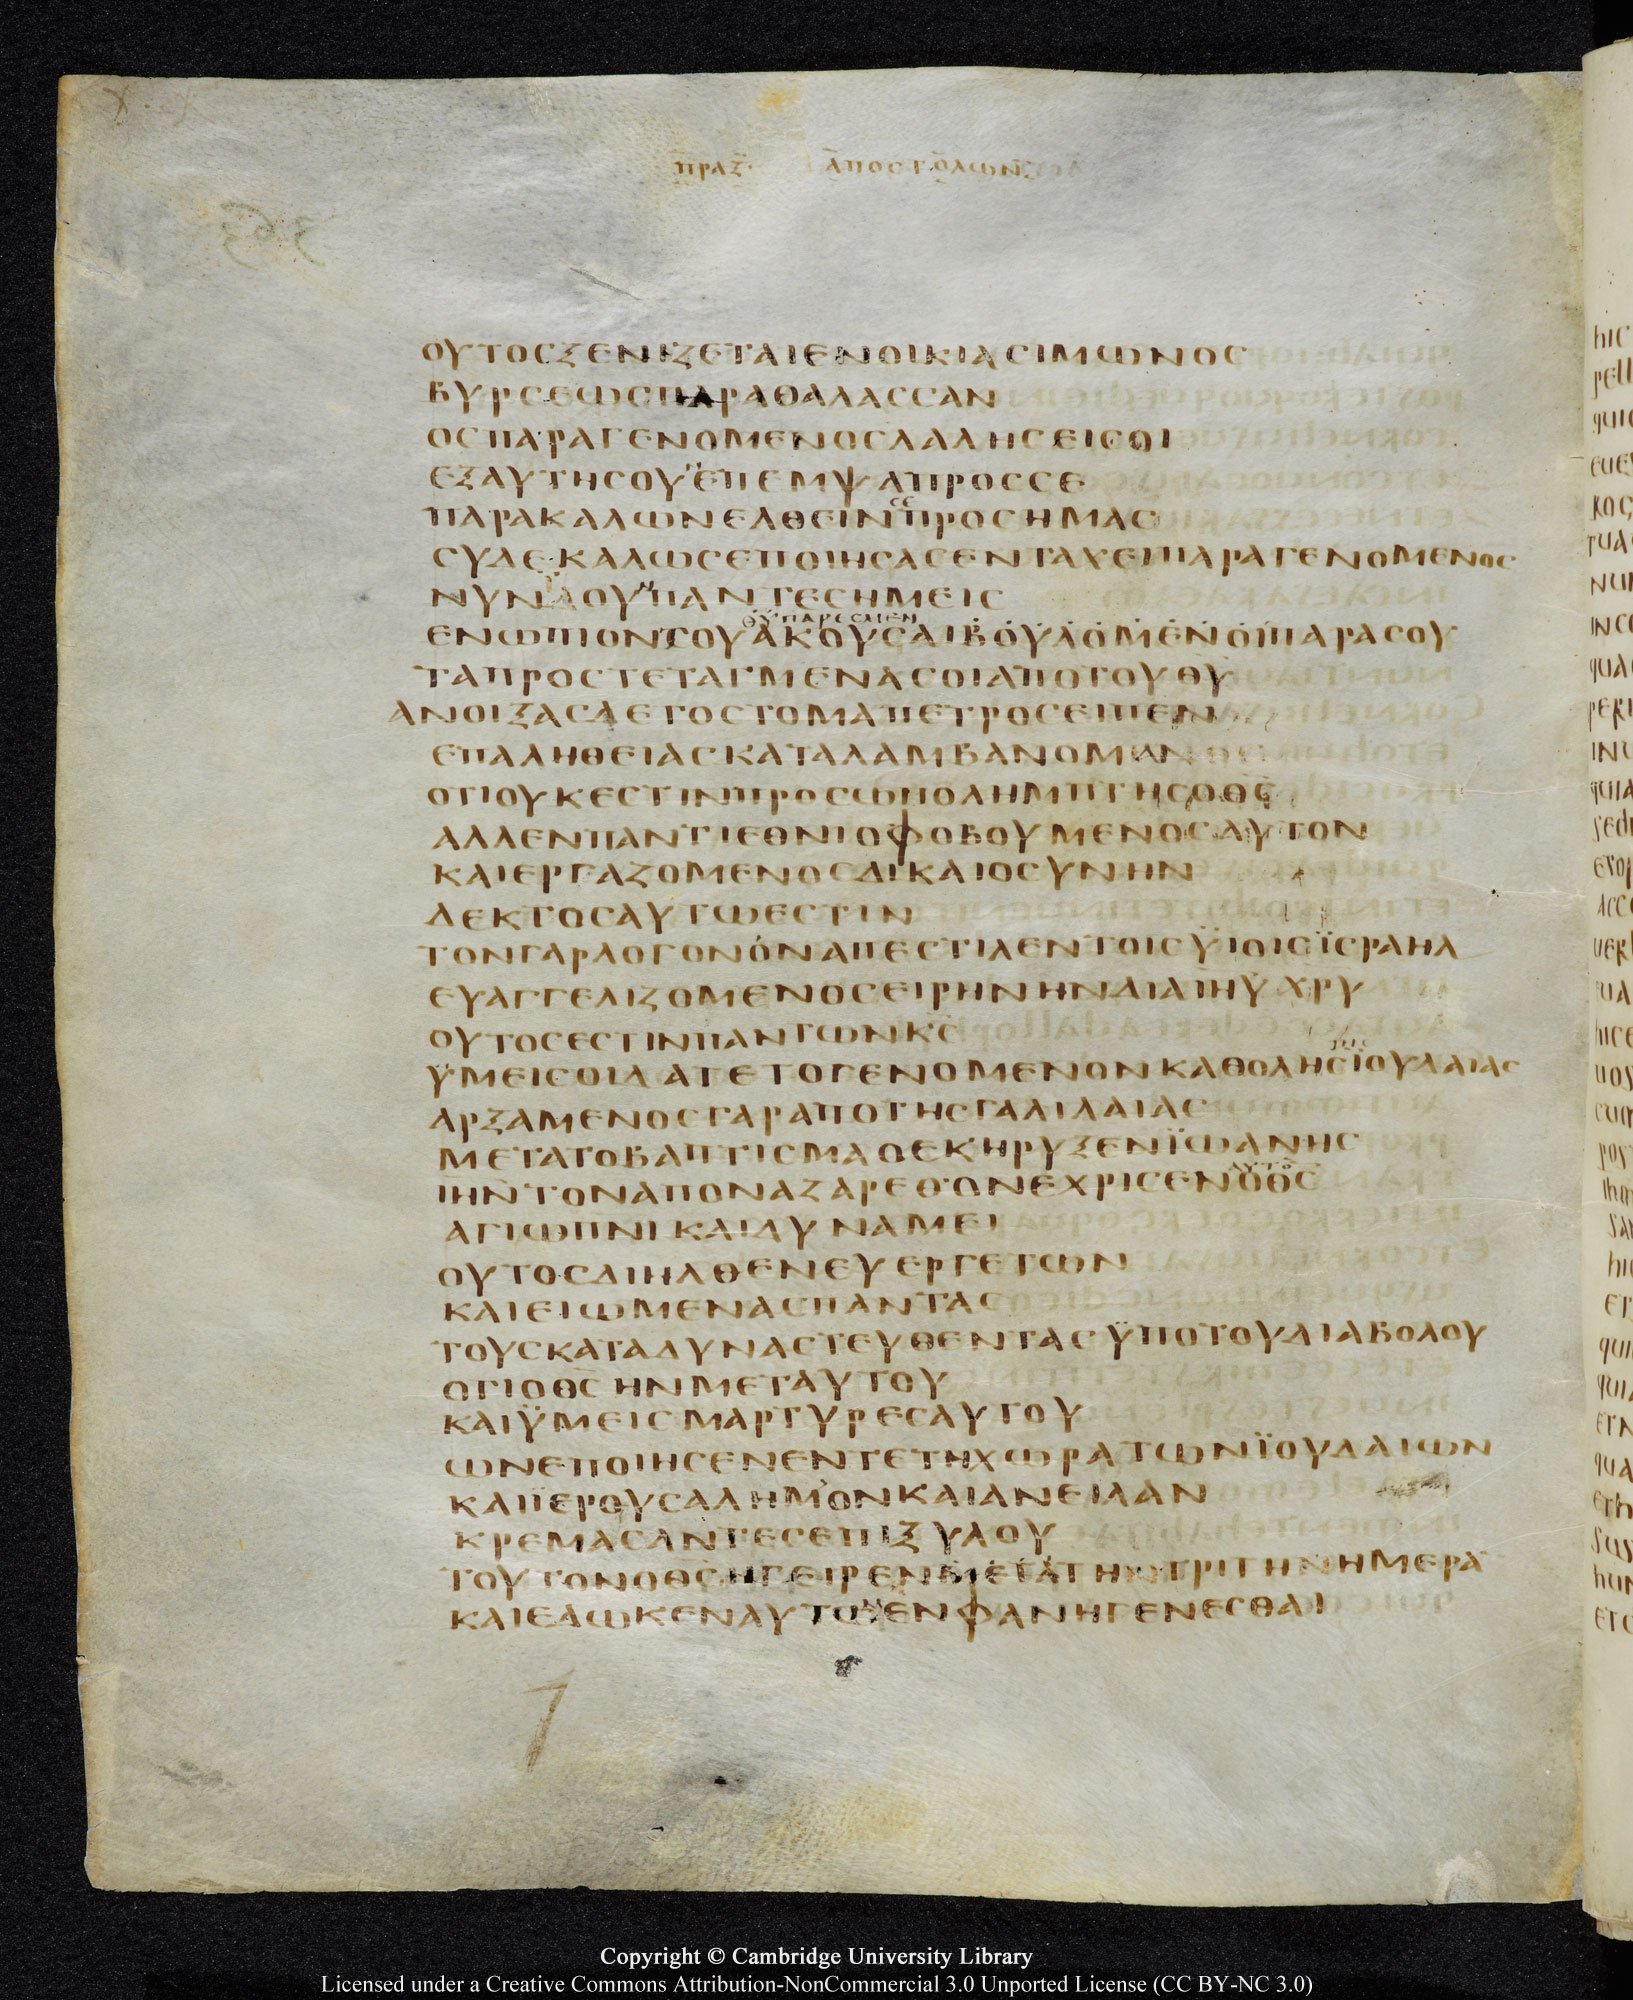 ΠΡΑΞ· ΑΠΟΣΤΟΛΩΝ
ΟΥΤΟΣΞΕΝΙΖΕΤΑΙΕΝΟΙΚΙΑΣΙΜΩΝΟΣ
ΒΥΡΣΕΩΣΠΑΡΑΘΑΛΑΣΣΑΝ
ΟΣΠΑΡΑΓΕΝΟΜΕΝΟΣΛΑΛΗΣΕΙΣΟΙ
ΕΞΑΥΤΗΣΟΥΕΠΕΜΨΑΠΡΟΣΣΕ
ΠΑΡΑΚΑΛΩΝΕΛΘΕΙΝΠΡΟΣΗΜΑΣ
ΣΥΔΕΚΑΛΩΣΕΠΟΙΗΣΑΣΕΝΤΑΧΕΙΠΑΡΑΓΕΝΟΜΕΝΟΣ
ΝΥΝΔΟΥΠΑΝΤΕΣΗΜΕΙΣ
ΘΥΠΑΡΕΣΜΕΝ
ΕΝΩΠΙΟΝΣΟΥΑΚΟΥΣΑΙΒΟΥΛΟΜΕΝΟΙΠΑΡΑΣΟΥ
ΤΑΠΡΟΣΤΕΤΑΓΜΕΝΑΣΟΙΑΠΟΤΟΥΘΥ
ΑΝΟΙΞΑΣΔΕΤΟΣΤΟΜΑΠΕΤΡΟΣΕΙΠΕΝ
ΕΠΑΛΗΘΕΙΑΣΚΑΤΑΛΑΜΒΑΝΟΜΩΝ
ΟΤΙΟΥΚΕΣΤΙΝΠΡΟΣΩΠΟΛΗΜΠΤΗΣΟΘΣ
ΑΛΛΕΝΠΑΝΤΙΕΘΝΙΟΦΟΒΟΥΜΕΝΟΣΑΥΤΟΝ
ΚΑΙΕΡΓΑΖΟΜΕΝΟΣΔΙΚΑΙΟΣΥΝΗΝ
ΔΕΚΤΟΣΑΥΤΩΕΣΤΙΝ
ΤΟΝΓΑΡΛΟΓΟΝΟΝΑΠΕΣΤΙΛΕΝΤΟΙΣΫΙΟΙΣΪΣΡΑΗΛ
ΕΥΑΓΓΕΛΙΖΟΜΕΝΟΣΕΙΡΗΝΗΝΔΙΑΙΗΥΧΡΥ
ΟΥΤΟΣΕΣΤΙΝΠΑΝΤΩΝΚΣ
ΫΜΕΙΣΟΙΔΑΤΕΤΟΓΕΝΟΜΕΝΟΝΚΑΘΟΛΗΣΪΟΥΔΑΙΑΣ
ΑΡΞΑΜΕΝΟΣΓΑΡΑΠΟΤΗΣΓΑΛΙΛΑΙΑΣ
ΜΕΤΑΤΟΒΑΠΤΙΣΜΑΟΕΚΗΡΥΞΕΝΪΩΑΝΗΣ
ΑΥΤΟ
ΙΗΝΤΟΝΑΠΟΝΑΖΑΡΕΘ·ΟΝΕΧΡΙΣΕΝΟΘΣ
ΑΓΙΩΠΝΙΚΑΙΔΥΝΑΜΕΙ
ΟΥΤΟΣΔΙΗΛΘΕΝΕΥΕΡΓΕΤΩΝ
ΚΑΙΕΙΩΜΕΝΑΣΠΑΝΤΑΣ
ΤΟΥΣΚΑΤΑΔΥΝΑΣΤΕΥΘΕΝΤΑΣΫΠΟΤΟΥΔΙΑΒΟΛΟΥ
ΟΤΙΟΘΣΗΝΜΕΤΑΥΤΟΥ
ΚΑΙΫΜΕΙΣΜΑΡΤΥΡΕΣΑΥΤΟΥ
ΩΝΕΠΟΙΗΣΕΝΕΝΤΕΤΗΧΩΡΑΤΩΝΪΟΥΔΑΙΩΝ
ΚΑΙΪΕΡΟΥΣΑΛΗΜΟΝΚΑΙΑΝΕΙΛΑΝ
ΚΡΕΜΑΣΑΝΤΕΣΕΠΙΞΥΛΟΥ
ΤΟΥΤΟΝΟΘΣΗΓΕΙΡΕΝΜΕΤΑΤΗΝΤΡΙΤΗΝΗΜΕΡΑ
ΚΑΙΕΔΩΚΕΝΑΥΤΩΕΝΦΑΝΗΓΕΝΕΣΘΑΙ
Copyright © Cambridge University Library
Licensed under a Creative Commons Attribution-NonCommercial 3.0 Unported License (CC BY-NC 3.0)